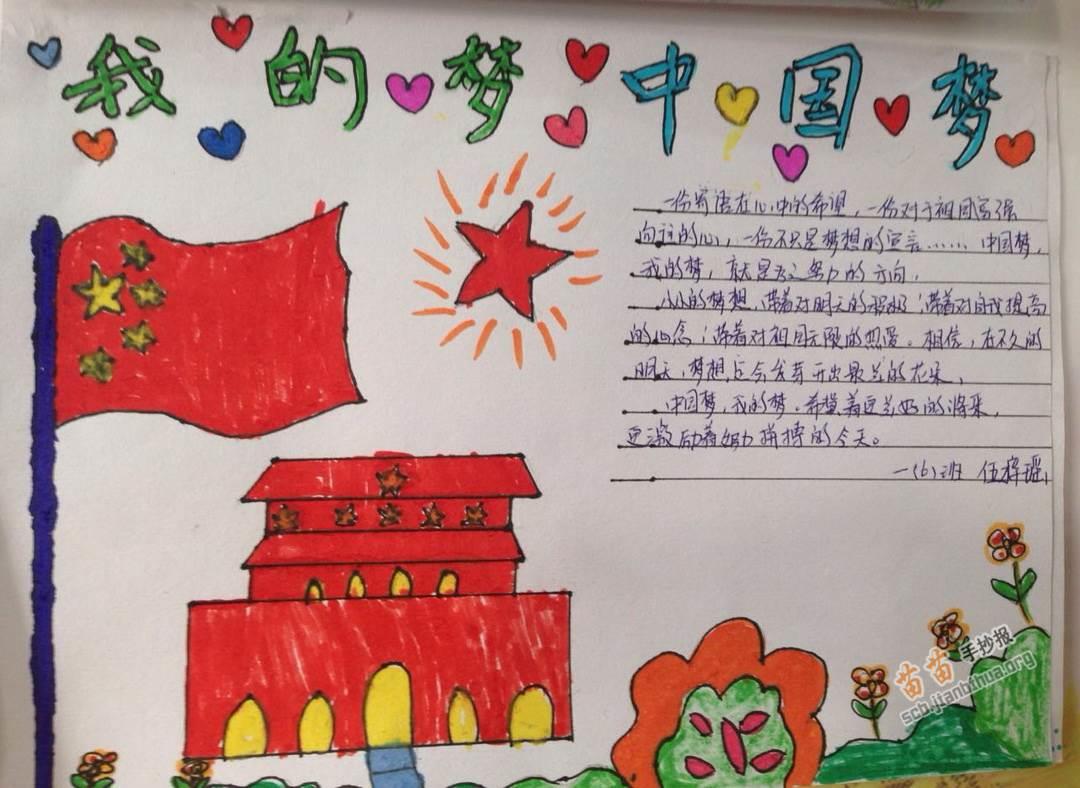 我的梦 中国梦
一份寄语在心中的希望，一份对于祖国富强
向往的心，一份不只是梦想的宣言……中国梦，
我的梦，就是我努力的方向，
小小的梦想，带着对明天的积极；带着对自我提高
的心念；带着对祖国无限的热爱。相信，在不久的
明天，梦想定会发芽开出最美的花朵，
中国梦，我的梦。希望着更美好的将来，
更激励着努力拼搏的今天。
一(6)班 伍梓瑶
苗苗手抄报
scb.jianbihua.org